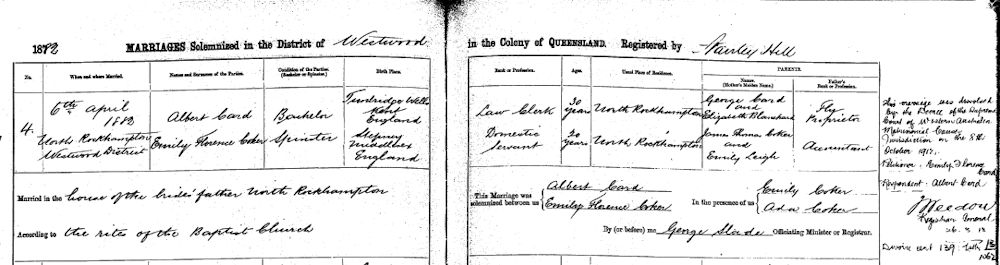 1882 MARRIAGES Solemnized in the District of Westwood in the Colony of QUEENSLAND. Registered by Stanley Hill
No. When and where Married. Names and Surnames of the Parties. Condition of the Parties. (Bachelor or Spinster.) Birth Place. Rank or Profession. Ages. Usual Place of Residence. PARENTS. Name. (Mother's Maiden Name.) Father's Rank or Profession.
4. 6th April 1882
North Rockhampton
Westwood District
Albert Card Bachelor Tunbridge Wells
Kent
England
Law Clerk 30 years North Rockhampton George Card
and
Elizabeth Blanchard
Fly
Proprietor
Emily Florence Coker Spinster Stepney
Middlesex
England
Domestic
Servant
20 years North Rockhampton James Thomas Coker
and
Emily Leigh
Accountant
Married in the house of the bride's father North Rockhampton
According to the rites of the Baptist Church
This Marriage was
solemnized between us
Albert Card
Emily Florence Coker
In the presence of us
Emily Coker
Ada Coker
By (or before) me George Slade Officiating Minister or Registrar.
This marriage was dissolved
by the Decree of the Supreme
Court of Western Australia
Matrimonial Causes
Jurisdiction on the 8th
October 1912.
Petitioner - Emily Florence
Card
Respondent - Albert Card
Registrar General
Divorce cert 139